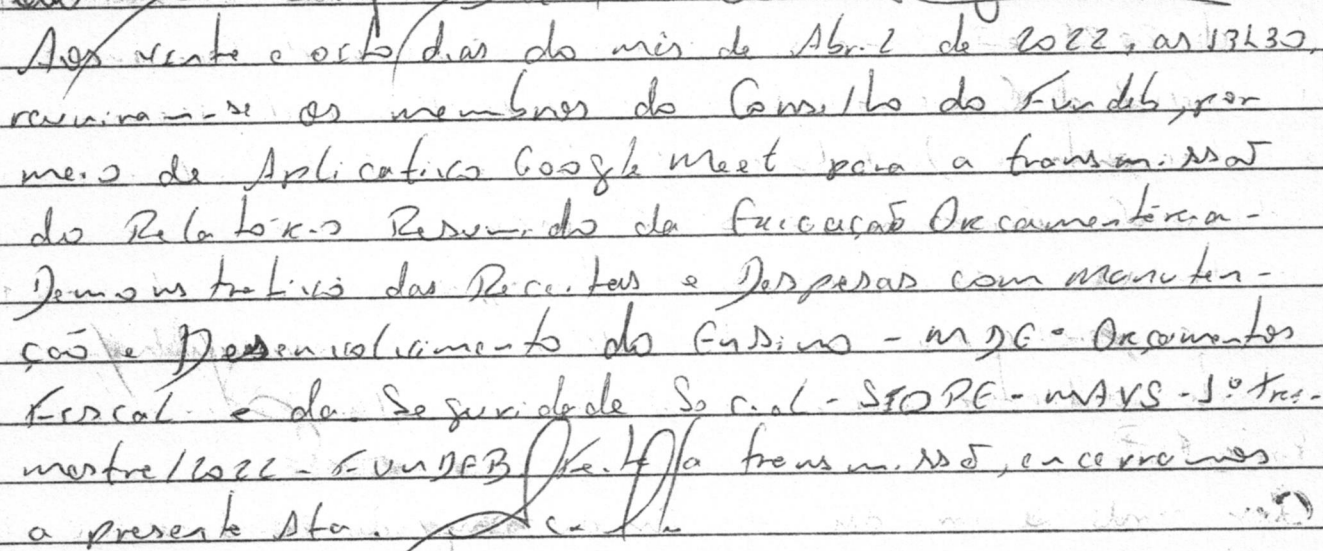 Aos vinte e octo dias do mês de Abril de 2022, as 13h30,
reuniram-se os membros do Conselho do Fundeb, por
meio de Aplicativo Google Meet para a transmissão
do Relatório Resumido da Execução Orçamentária -
Demonstrativo das Receitas e Despesas com Manuten-
ção e Desenvolvimento do Ensino - MDE - Orçamentos
Fiscal e da Seguridade Social - SIOPE - MAVS - 1º Tri-
mestre/2022 - FUNDEB Feita a transmissão, encerramos
a presente Ata.